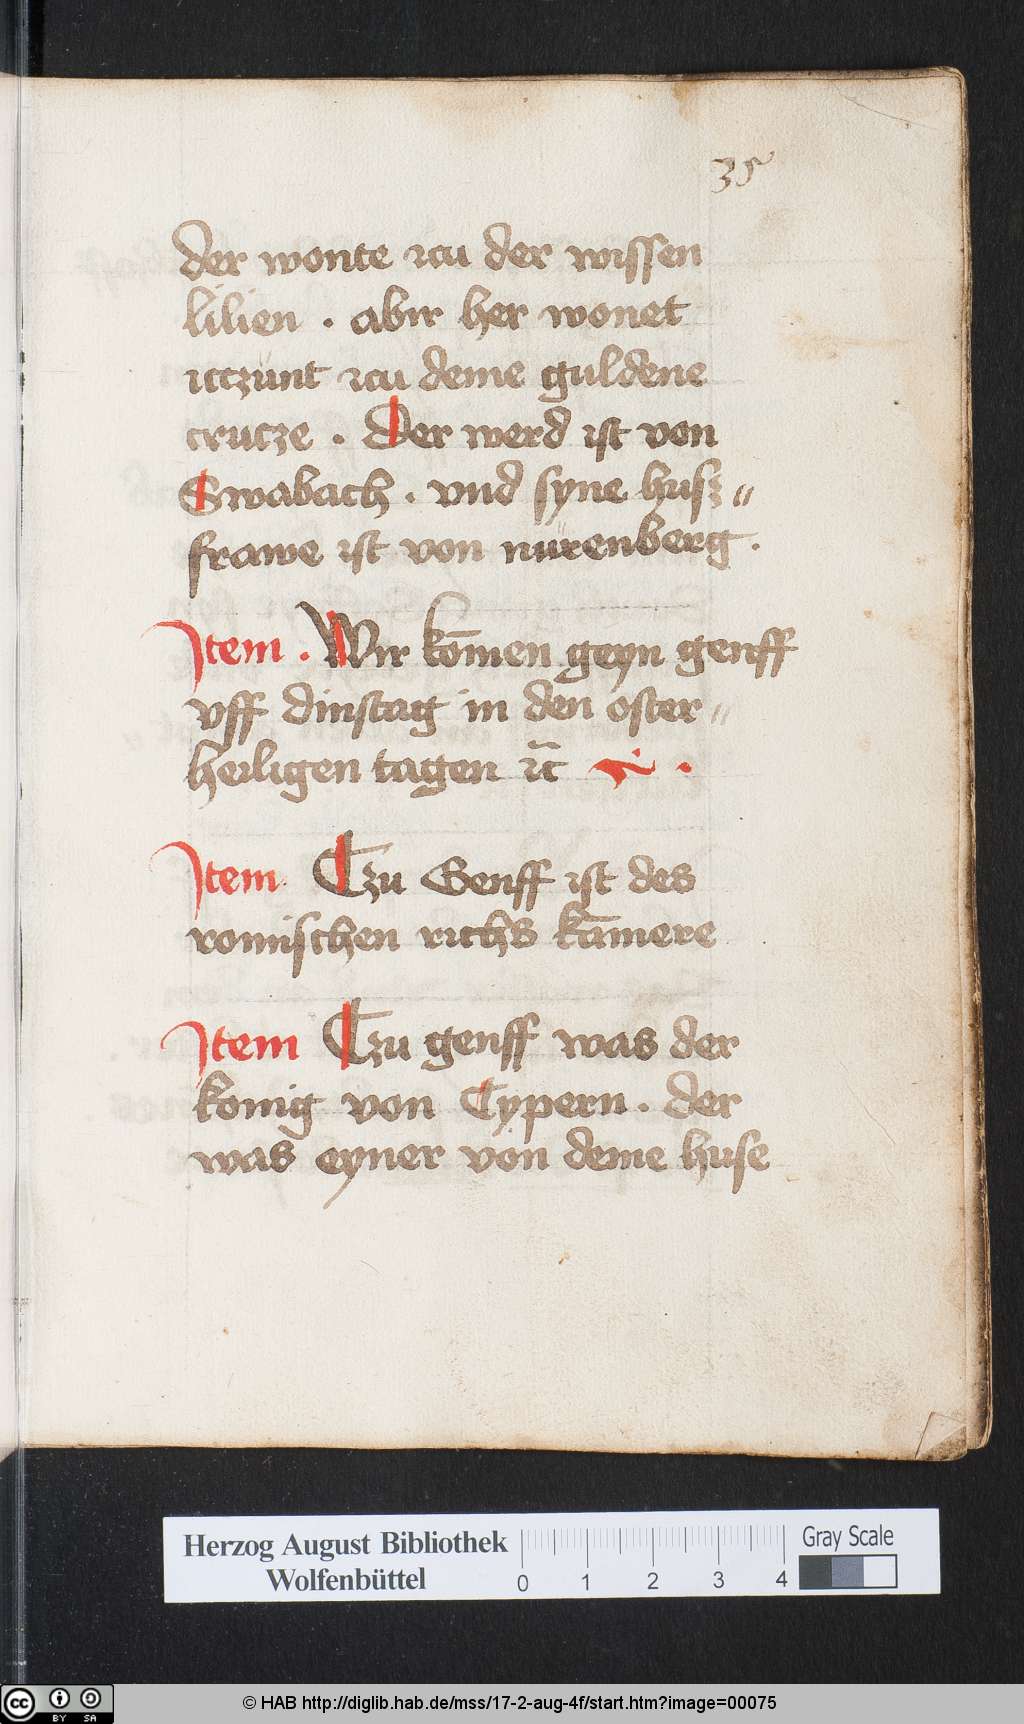 35
der wonte zcu der wissen
lilien . abir her wonet
itczunt zcu deme guldene
crutze . Der werd ist von
Swabach . vnd syne husz„
frawe ist von nürenberg .
Item . Wir kōmen geyn genff
vff dinstag in den oster„
heiligen tagen ꝛc̃
Item Tzu Genff ist des
romischen richs kāmere
Item Tzu genff was der
konig von Cypern . der
was eyner von deme huse
Herzog August Bibliothek
Wolfenbüttel
0 1 2 3 4
Gray Scale
cc BY SA
© HAB http://diglib.hab.de/mss/17-2-aug-4f/start.htm?image=00075